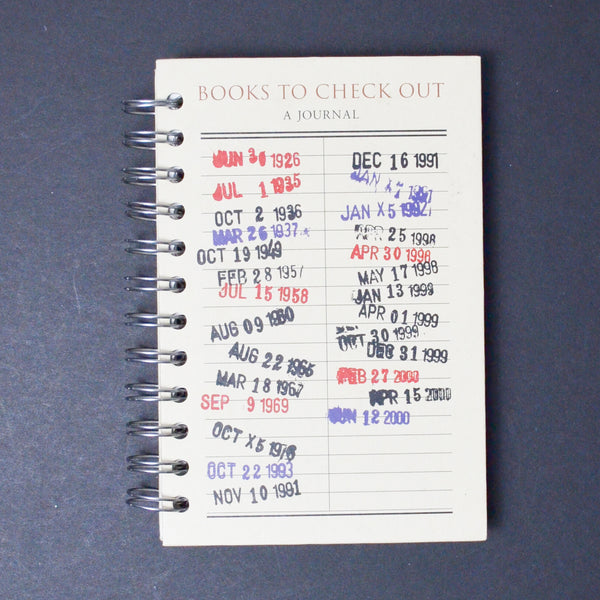 BOOKS TO CHECK OUT
A JOURNAL
JUN 30 1926
JUL 1 1935
OCT 2 1936
MAR 26 1937
OCT 19 1949
FEB 28 1957
JUL 15 1958
AUG 09 1960
AUG 22 1965
MAR 18 1967
SEP 9 1969
OCT X5 1976
OCT 22 1993
NOV 10 1991
DEC 16 1991
JAN
JAN X5 1992
APR 25 1998
APR 30 1998
MAY 17 1998
JAN 13 1999
APR 01 1999
OCT 30 1999
DEC 31 1999
FEB 27 2000
APR 15 2000
JUN 12 2000